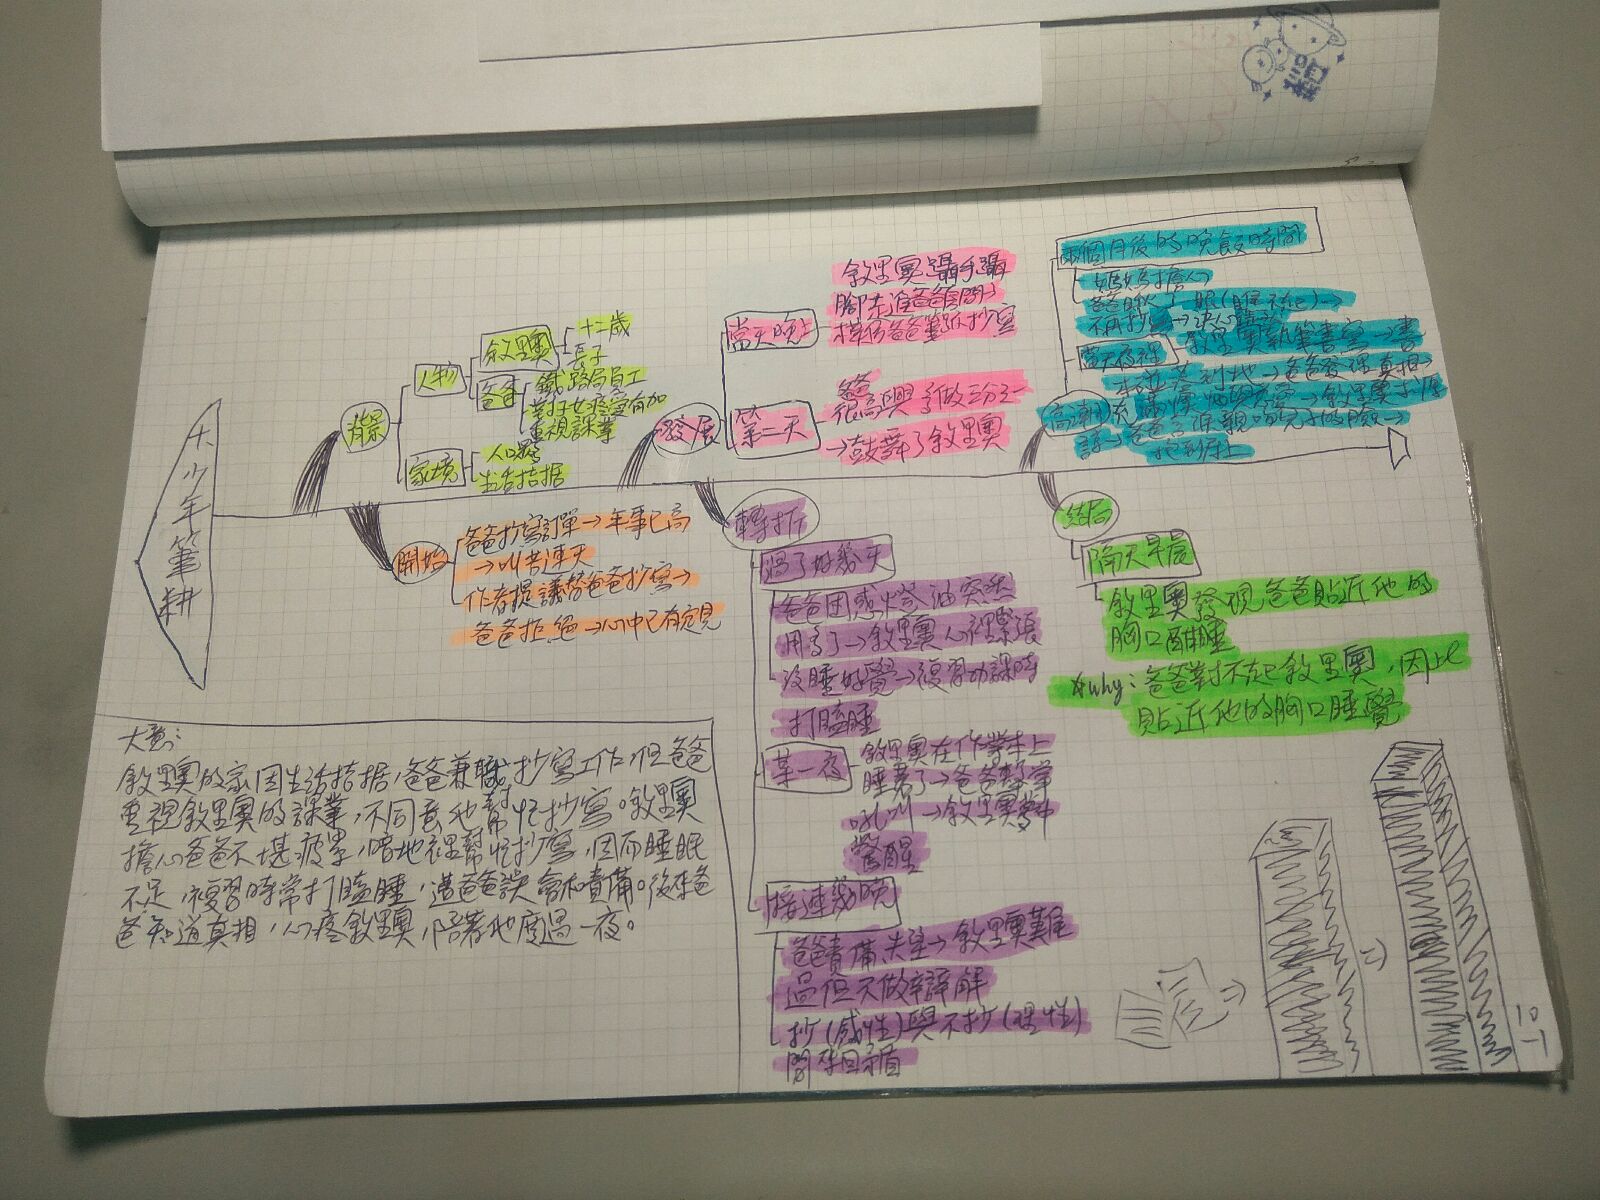 小少年筆耕
背景
人物
敘里奧
十二歲
長子
爸爸
鐵路局員工
對子女疼愛有加
重視課業
家境
人口
生活拮据
開始
爸爸抄寫訂單→年事已高
→叫苦連天
作者提議替爸爸抄寫→
爸爸拒絕→心中已有定見
發展
當天晚上
敘里奧躡手躡
腳走進爸爸
模仿爸爸筆跡抄寫
第二天
爸爸
很高興 多做三分之一
→鼓舞了敘里奧
轉折
過了好幾天
爸爸困惑火燈油突然
用多了→敘里奧心裡緊張
沒睡好覺→複習功課時
打瞌睡
某一夜
敘里奧在作業本上
睡著了→爸爸擊掌
吼叫→敘里奧夢中
驚醒
接連幾晚
爸爸責備失望→敘里奧難
過但不做辯解
抄(感性)與不抄(理性)
間來回矛盾
高潮
兩個月後的晚飯時間
媽媽擔心
爸爸瞅了一眼
不再抄
當天夜裡
敘里奧執筆書寫→書
本碰落到地→爸爸發現真相→
爸爸 親吻兒子的臉→
抱到床上
結局
隔天早晨
敘里奧發現爸爸貼近他的
胸口酣睡
*why:爸爸對不起敘里奧,因此
貼近他的胸口睡覺
大意:
敘里奧的家因生活拮据,爸爸兼職抄寫工作,但爸爸
重視敘里奧的課業,不同意他幫忙抄寫。敘里奧
擔心爸爸不堪疲累,暗地裡幫忙抄寫,因而睡眠
不足,複習時常打瞌睡,遭爸爸誤會和責備。後來爸
爸知道真相,心疼敘里奧,陪著他度過一夜。
10
-1